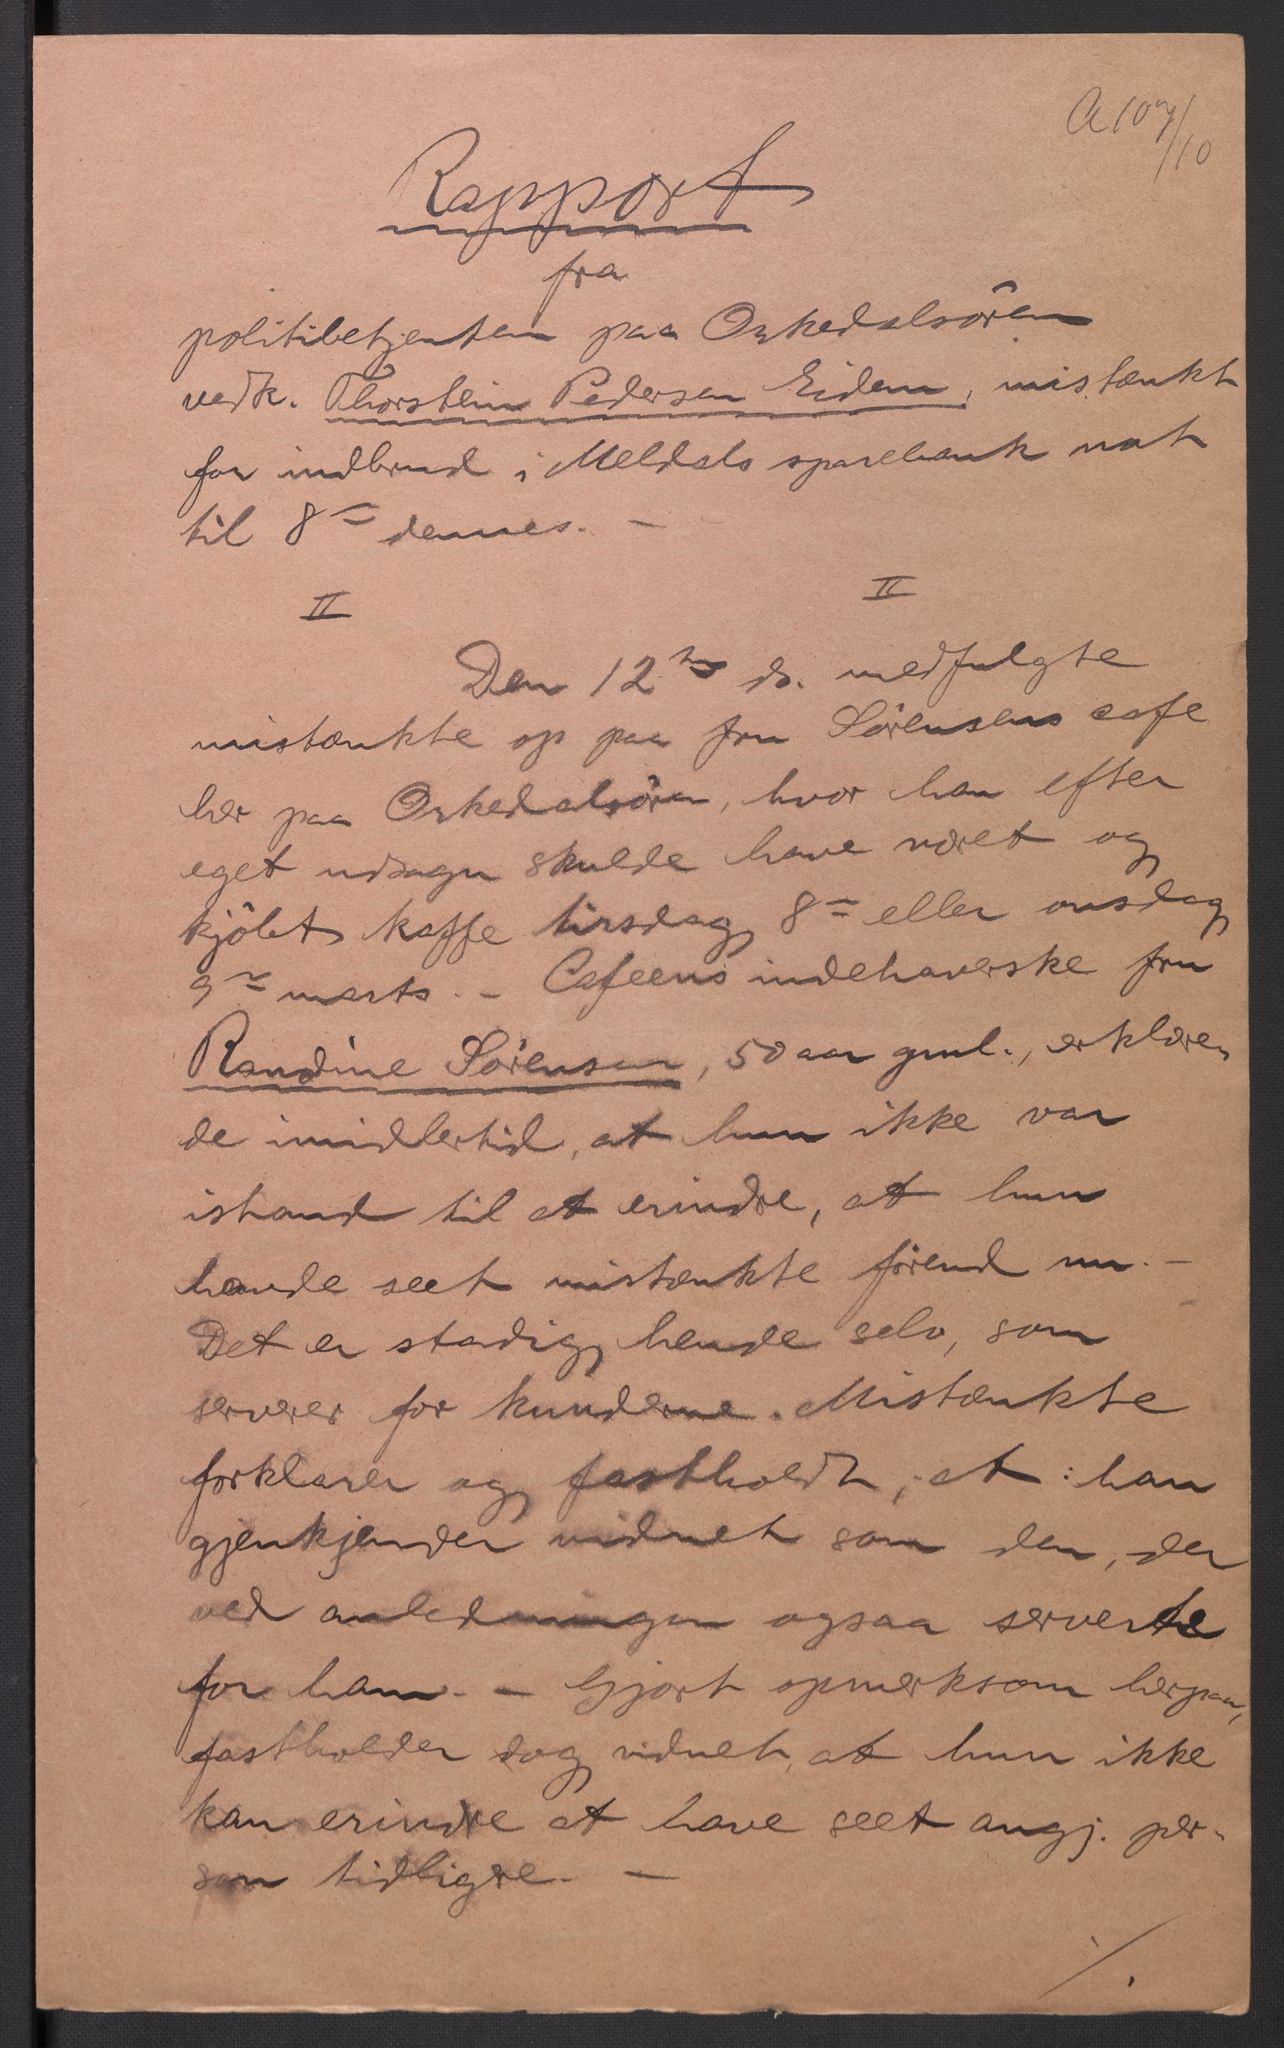 A 107/10
Rapport
fra
politibetjenten paa Orkedalsøren
vedk. Thorstein Pedersen Eidem, mistænkt
for indbrud i Meldals sparebank nat
til 8de dennes. —
II II
Den 12te ds. medfulgte
mistænkte op paa fru Sörensens cafe
her paa Orkedalsören, hvor han efter
eget udsagn skulde have været og
kjöbt kaffe tirsdag 8de eller onsdag
9de marts. – Cafeens indehaverske fru
Randine Sörensen, 50 aar gml., erklære-
de imidlertid, at hun ikke var
istand til at erindre, at hun
havde seet mistænkte förend nu. –
Det er stadig hende selv, som
serverer for kunderne. Mistænkte
forklarer og fastholdt, at han
gjenkjender vidnet som den, der
ved anledningen ogsaa serverte
for ham. – Gjort opmerksom herpaa,
fastholder dog vidnet, at hun ikke
kan erindre at have seet angj. per-
son tidligere. —
./.